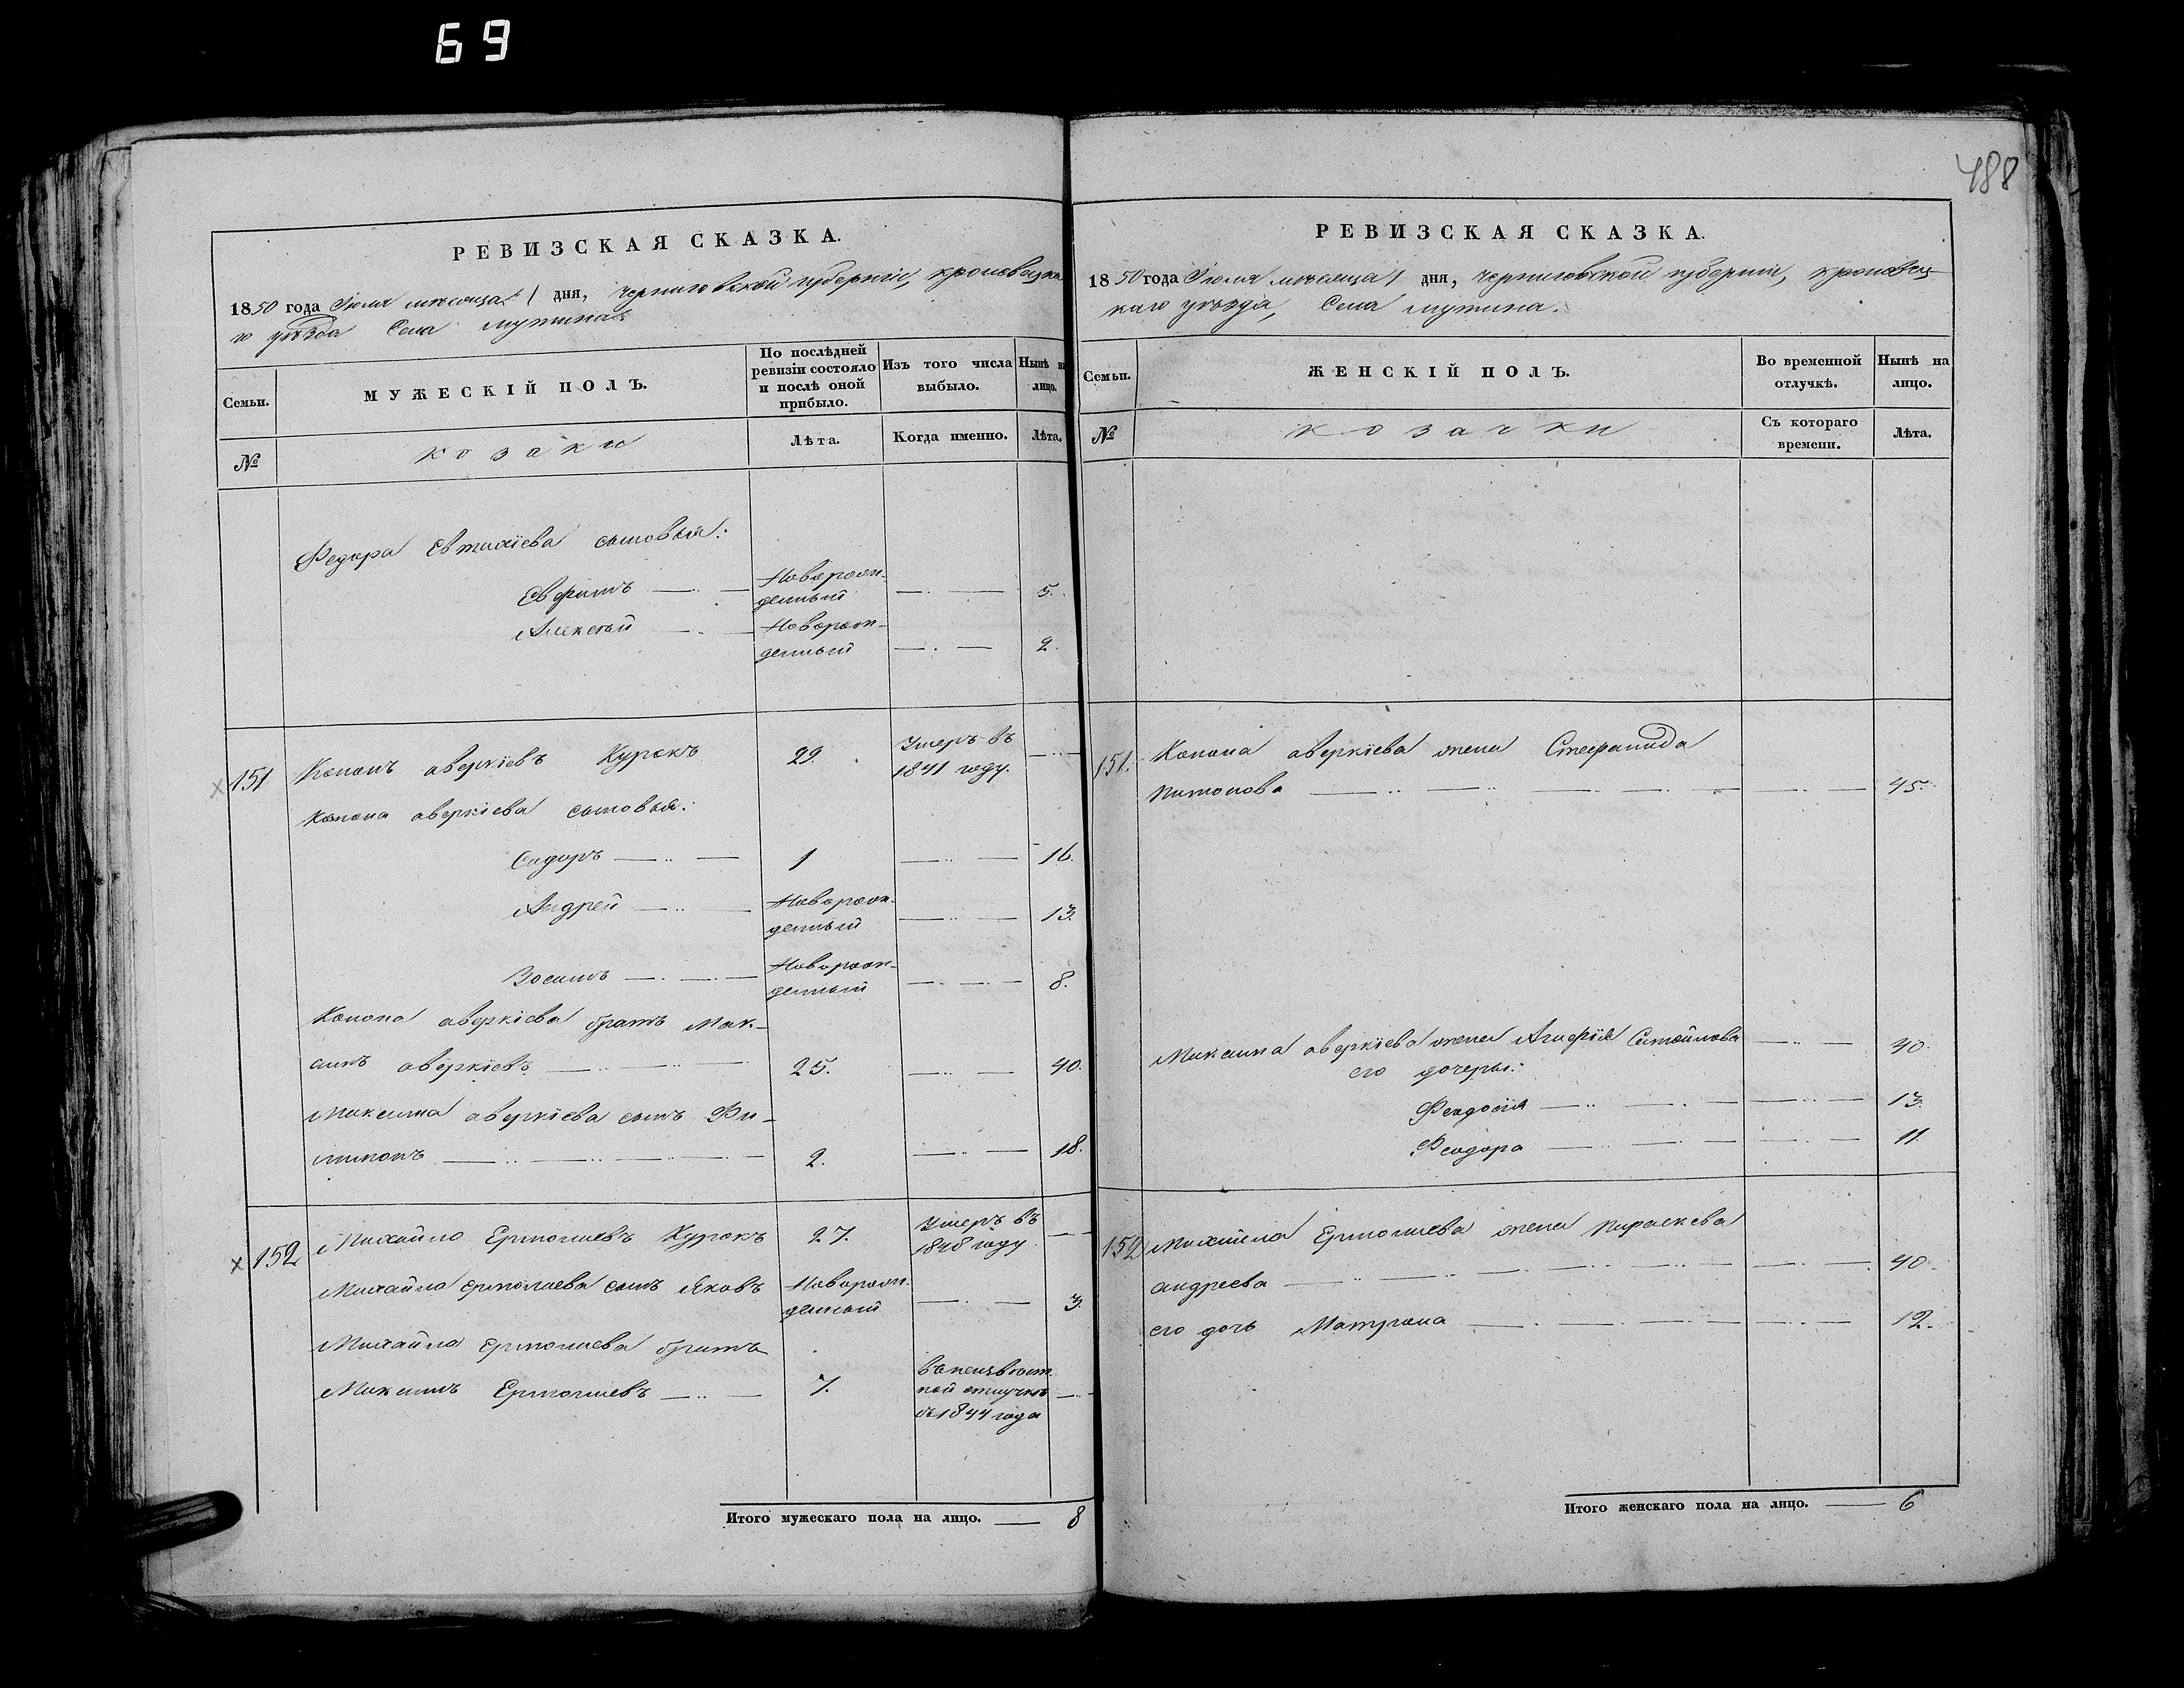 69
488
РЕВИЗСКАЯ СКАЗКА.
1850 года Іюля мѣсяца 1 дня, Черниговской губерніи, кролевецка
го уѣзда Села Мутина
Семьи.
МУЖЕСКІЙ ПОЛЪ.
По послѣдней ревизіи состояло и послѣ оной прибыло.
Изъ того числа выбыло.
Нынѣ на лицо.
№
козаки
Лѣта.
Когда именно.
Лѣта.
Федора Евтихіева сыновья:
Евфимъ Новорож-
денный 5.
Алексѣй Новорож-
денный 2.
151 Кононъ аверкіевъ Курокъ 29. Умеръ въ
1841 году.
Конона аверкіева сыновья:
Сидоръ 1 16.
Андрей Новорож-
денный 13.
Зосимъ Новорож-
денный 8.
Конона аверкіева братъ Мак-
симъ аверкіевъ 25. 40.
Максима аверкіева сынъ Фи-
липонъ 2. 18.
152 Михайло Ермолаевъ Курокъ 27. Умеръ въ
1848 году
Михайла ермолаева сынъ Яковъ Новорож-
денный 3.
Михайла Ермолаева братъ
Максимъ Ермолаевъ 7. въ неизвѣст-
ной отлучкѣ
съ 1844 года
Итого мужескаго пола на лицо. 8
РЕВИЗСКАЯ СКАЗКА.
1850 года Іюля мѣсяца 1 дня, Черниговской губерніи, кролевец-
каго уѣзда, Села Мутина.
Семьи.
ЖЕНСКІЙ ПОЛЪ.
Во временной отлучкѣ.
Нынѣ на лицо.
№
козачки
Съ котораго времени.
Лѣта.
151. Конона аверкіева жена Стефанида
45.
Максима аверкіева жена Агафія 40.
его дочеры:
Феодосія 13.
Феодора 11.
152 Михайла Ермолаева жена параскева
андреева 40.
его дочь Матрона 12.
Итого женскаго пола на лицо. 6